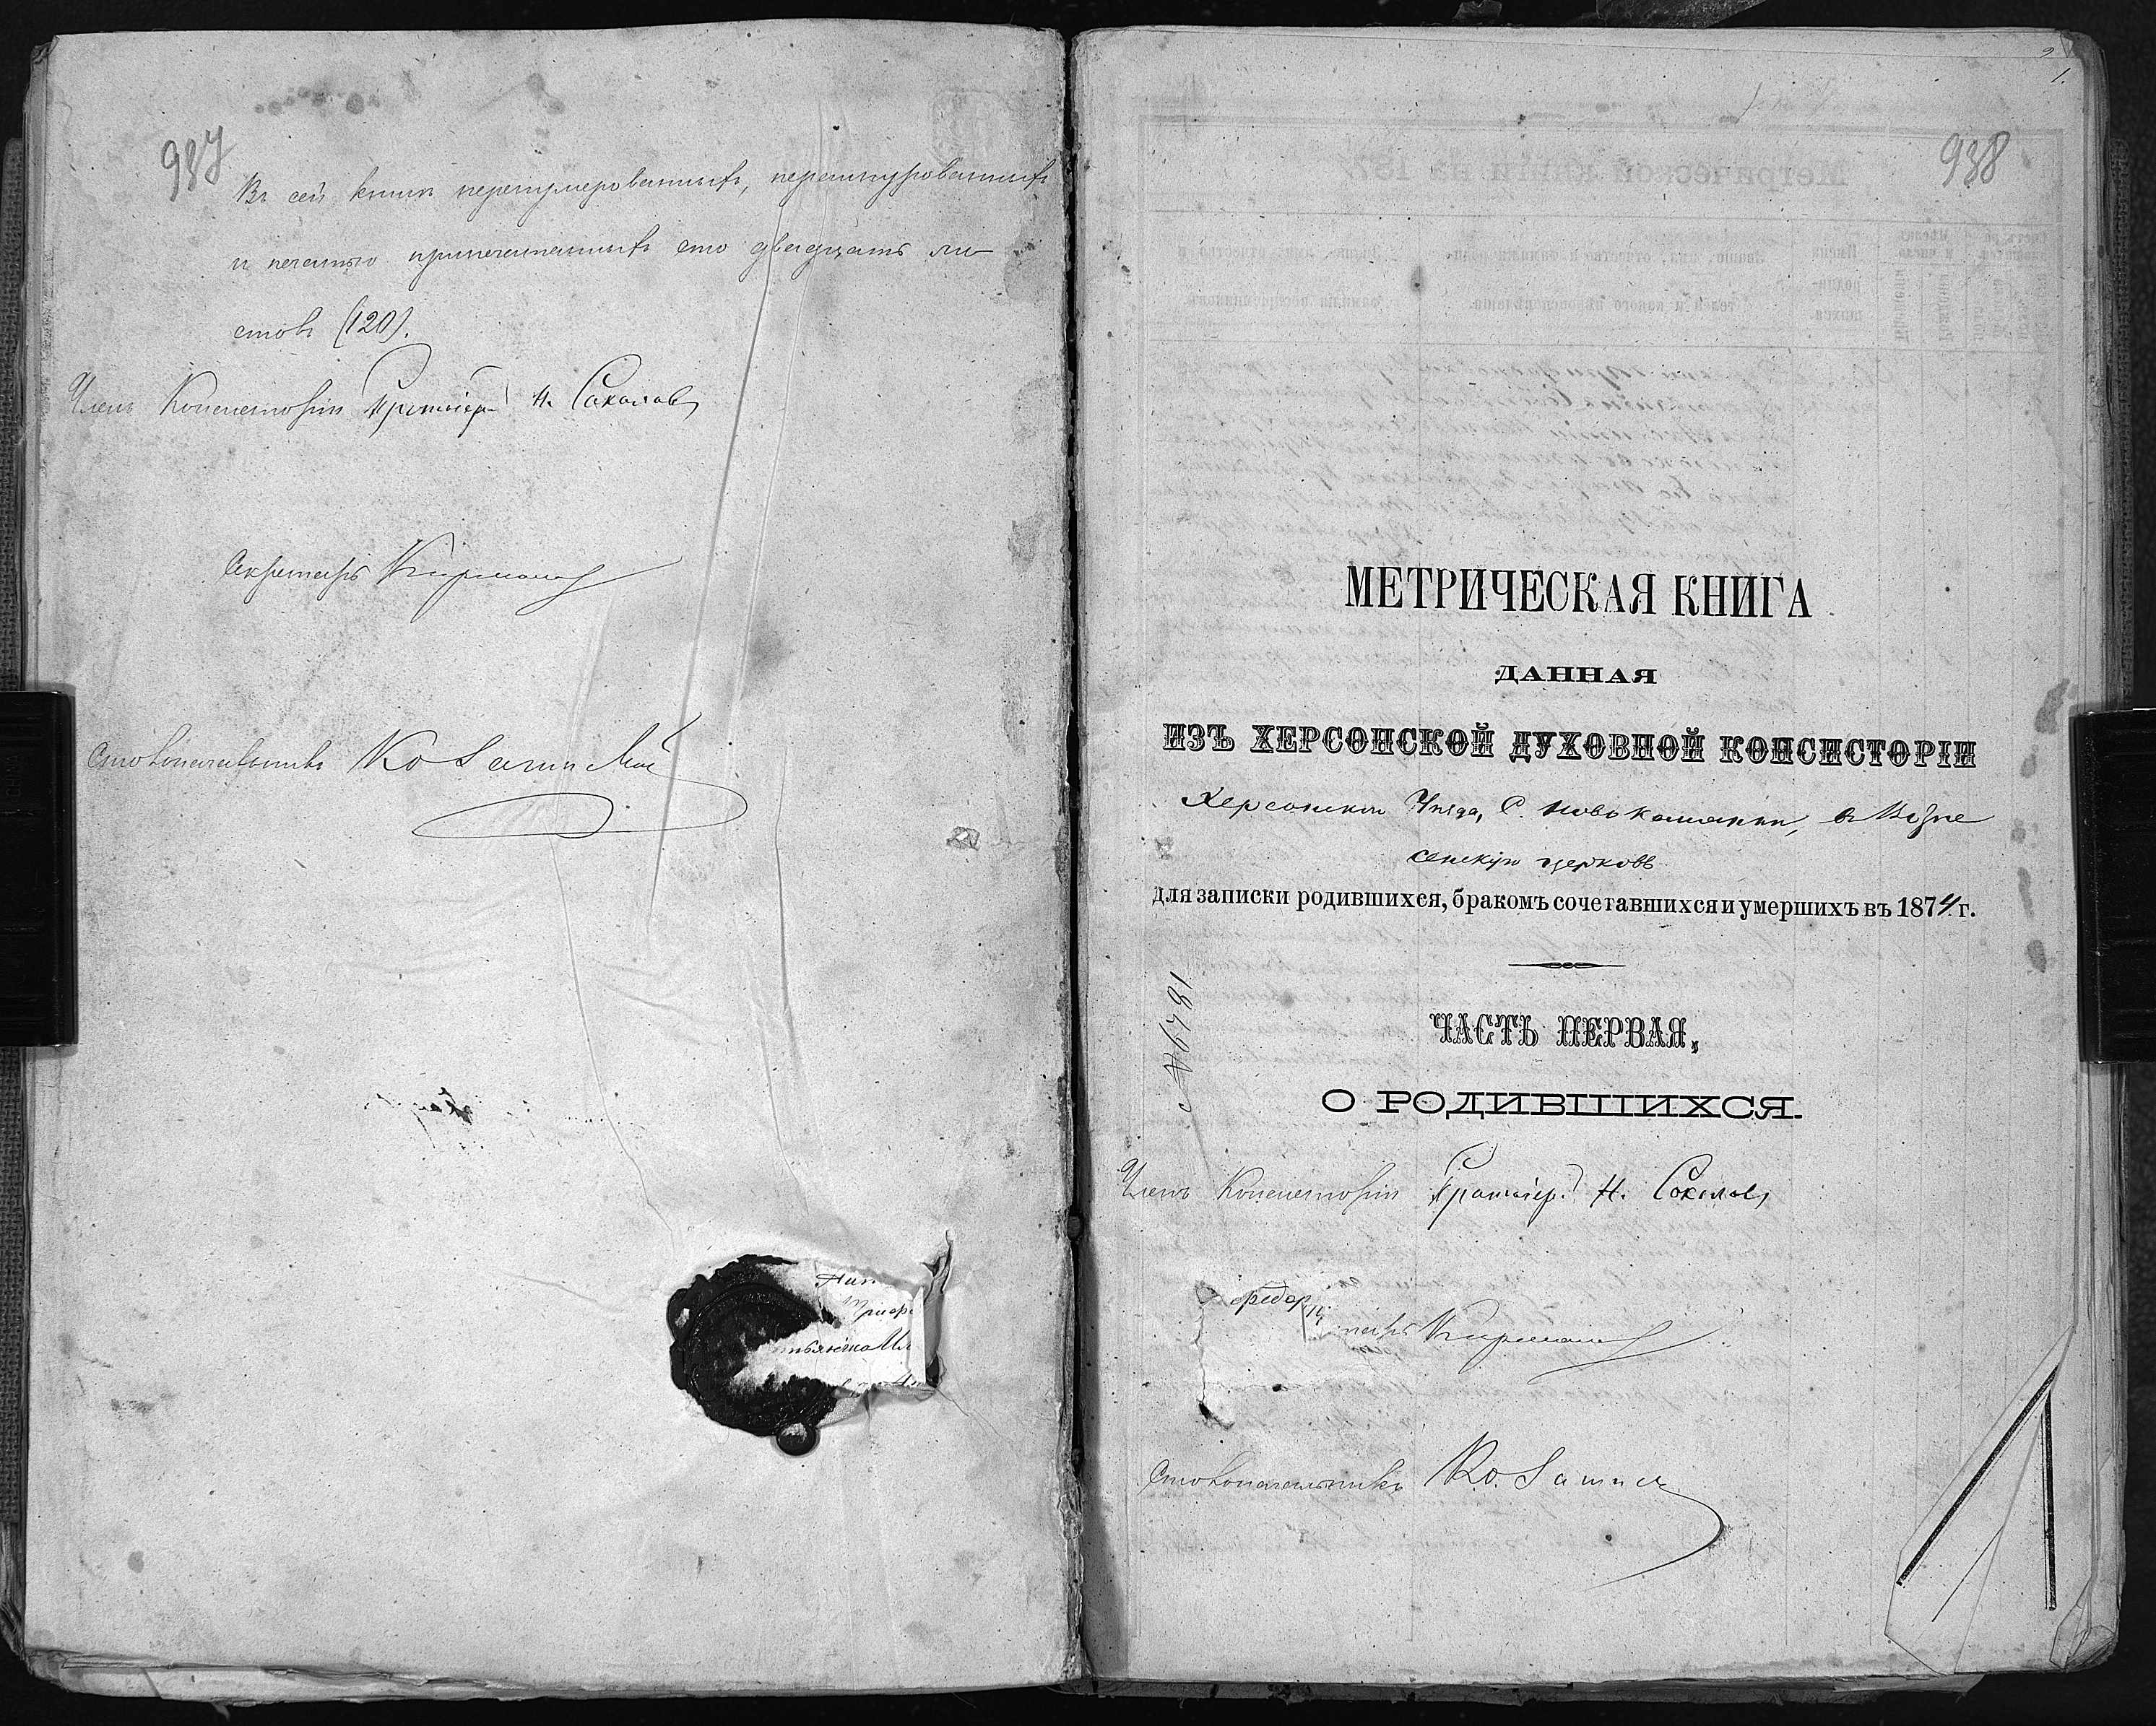 987
Въ сей книгѣ перенумерованныхъ, перешнурованныхъ
и печатью припечатанныхъ сто двадцать ли-
стовъ (120).
Членъ Консисторіи Протоіер. Н. Соколовъ
Секретарь
Столоначальникъ
938
1.
МЕТРИЧЕСКАЯ КНИГА
ДАННАЯ
ИЗЪ ХЕРСОНСКОЙ ДУХОВНОЙ КОНСИСТОРІИ
Херсонскаго Уѣзда, С. Новокаменки, въ Возне
сенскую церковь
для записки родившихся, бракомъ сочетавшихся и умершихъ въ 1874 г.
№ 6781
ЧАСТЬ ПЕРВАЯ,
О РОДИВШИХСЯ.
Членъ Консисторіи Протоіер. Н. Соколовъ
Столоначальникъ